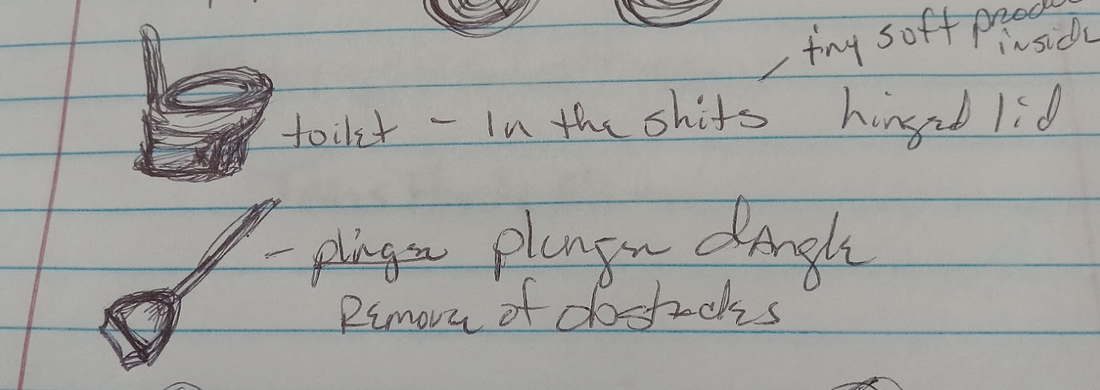 tiny soft
inside
toilet - In the shits hinged lid
- plinger plunger dAngle
Remover of obstacles